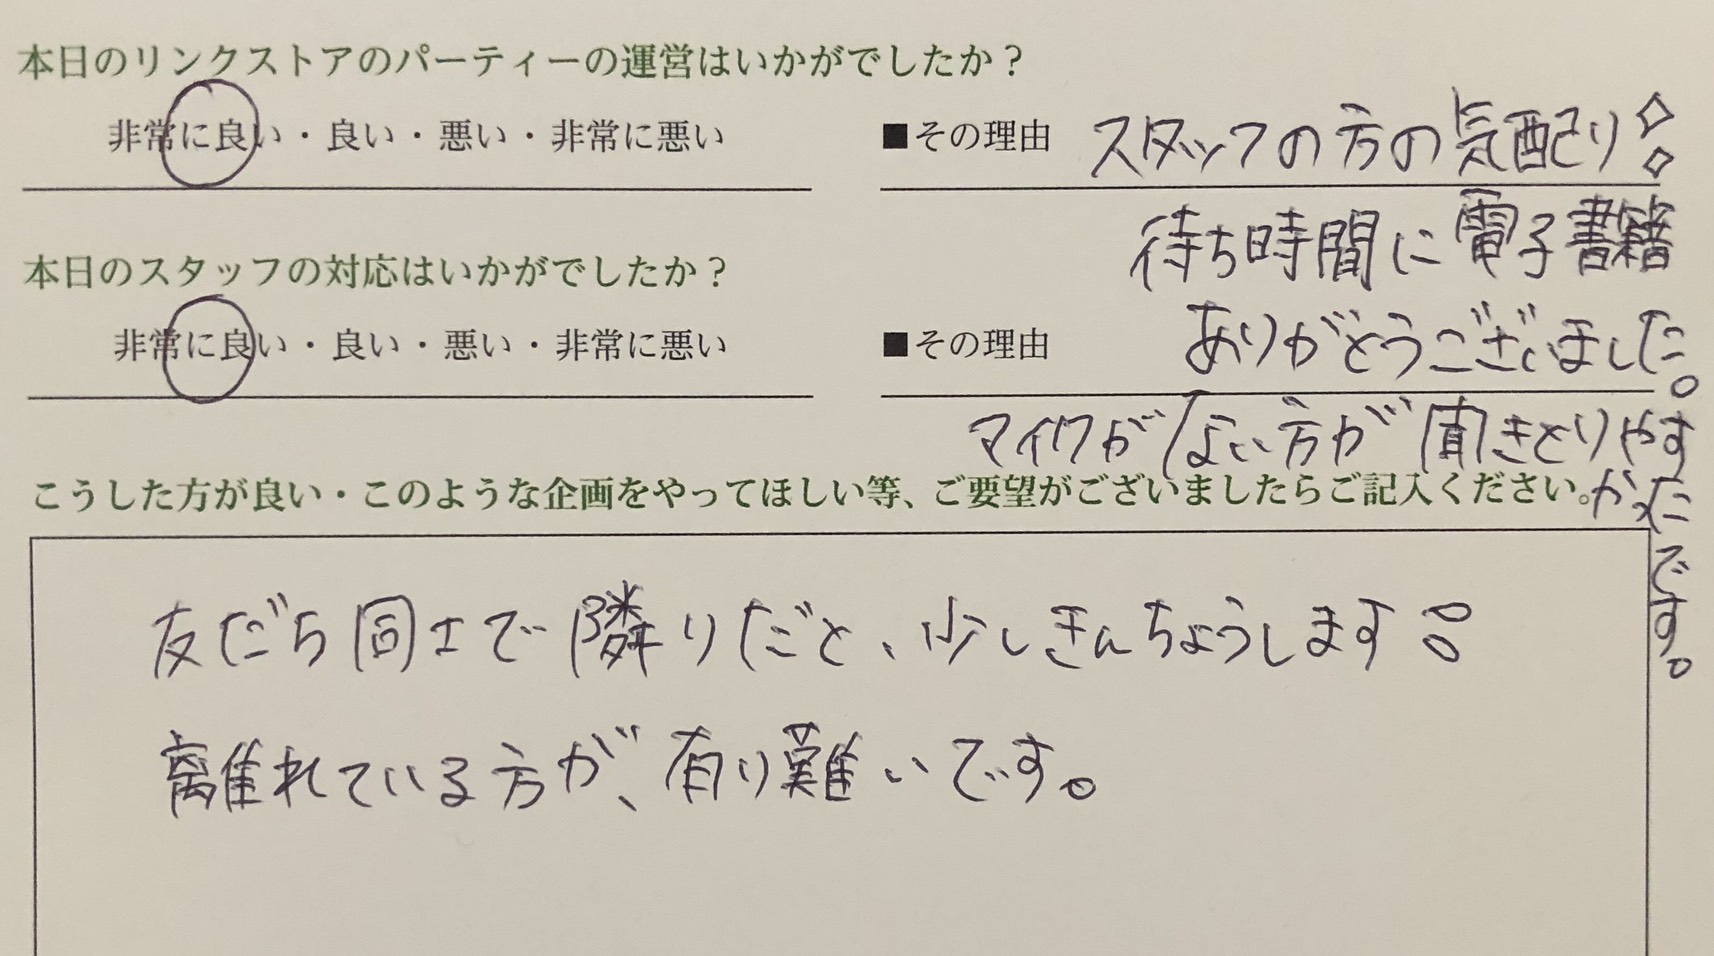 本日のリンクストアのパーティーの運営はいかがでしたか？
非常に良い・良い・悪い・非常に悪い
■その理由 スタッフの方の気配り
待ち時間に電子書籍
本日のスタッフの対応はいかがでしたか？
ありがとうございました。
非常に良い・良い・悪い・非常に悪い
■その理由
マイクがない方が聞きとりやす
かったです。
こうした方が良い・このような企画をやってほしい等、ご要望がございましたらご記入ください。
友だち同士で隣りだと、少しきんちょうします
離れている方が、有り難いです。